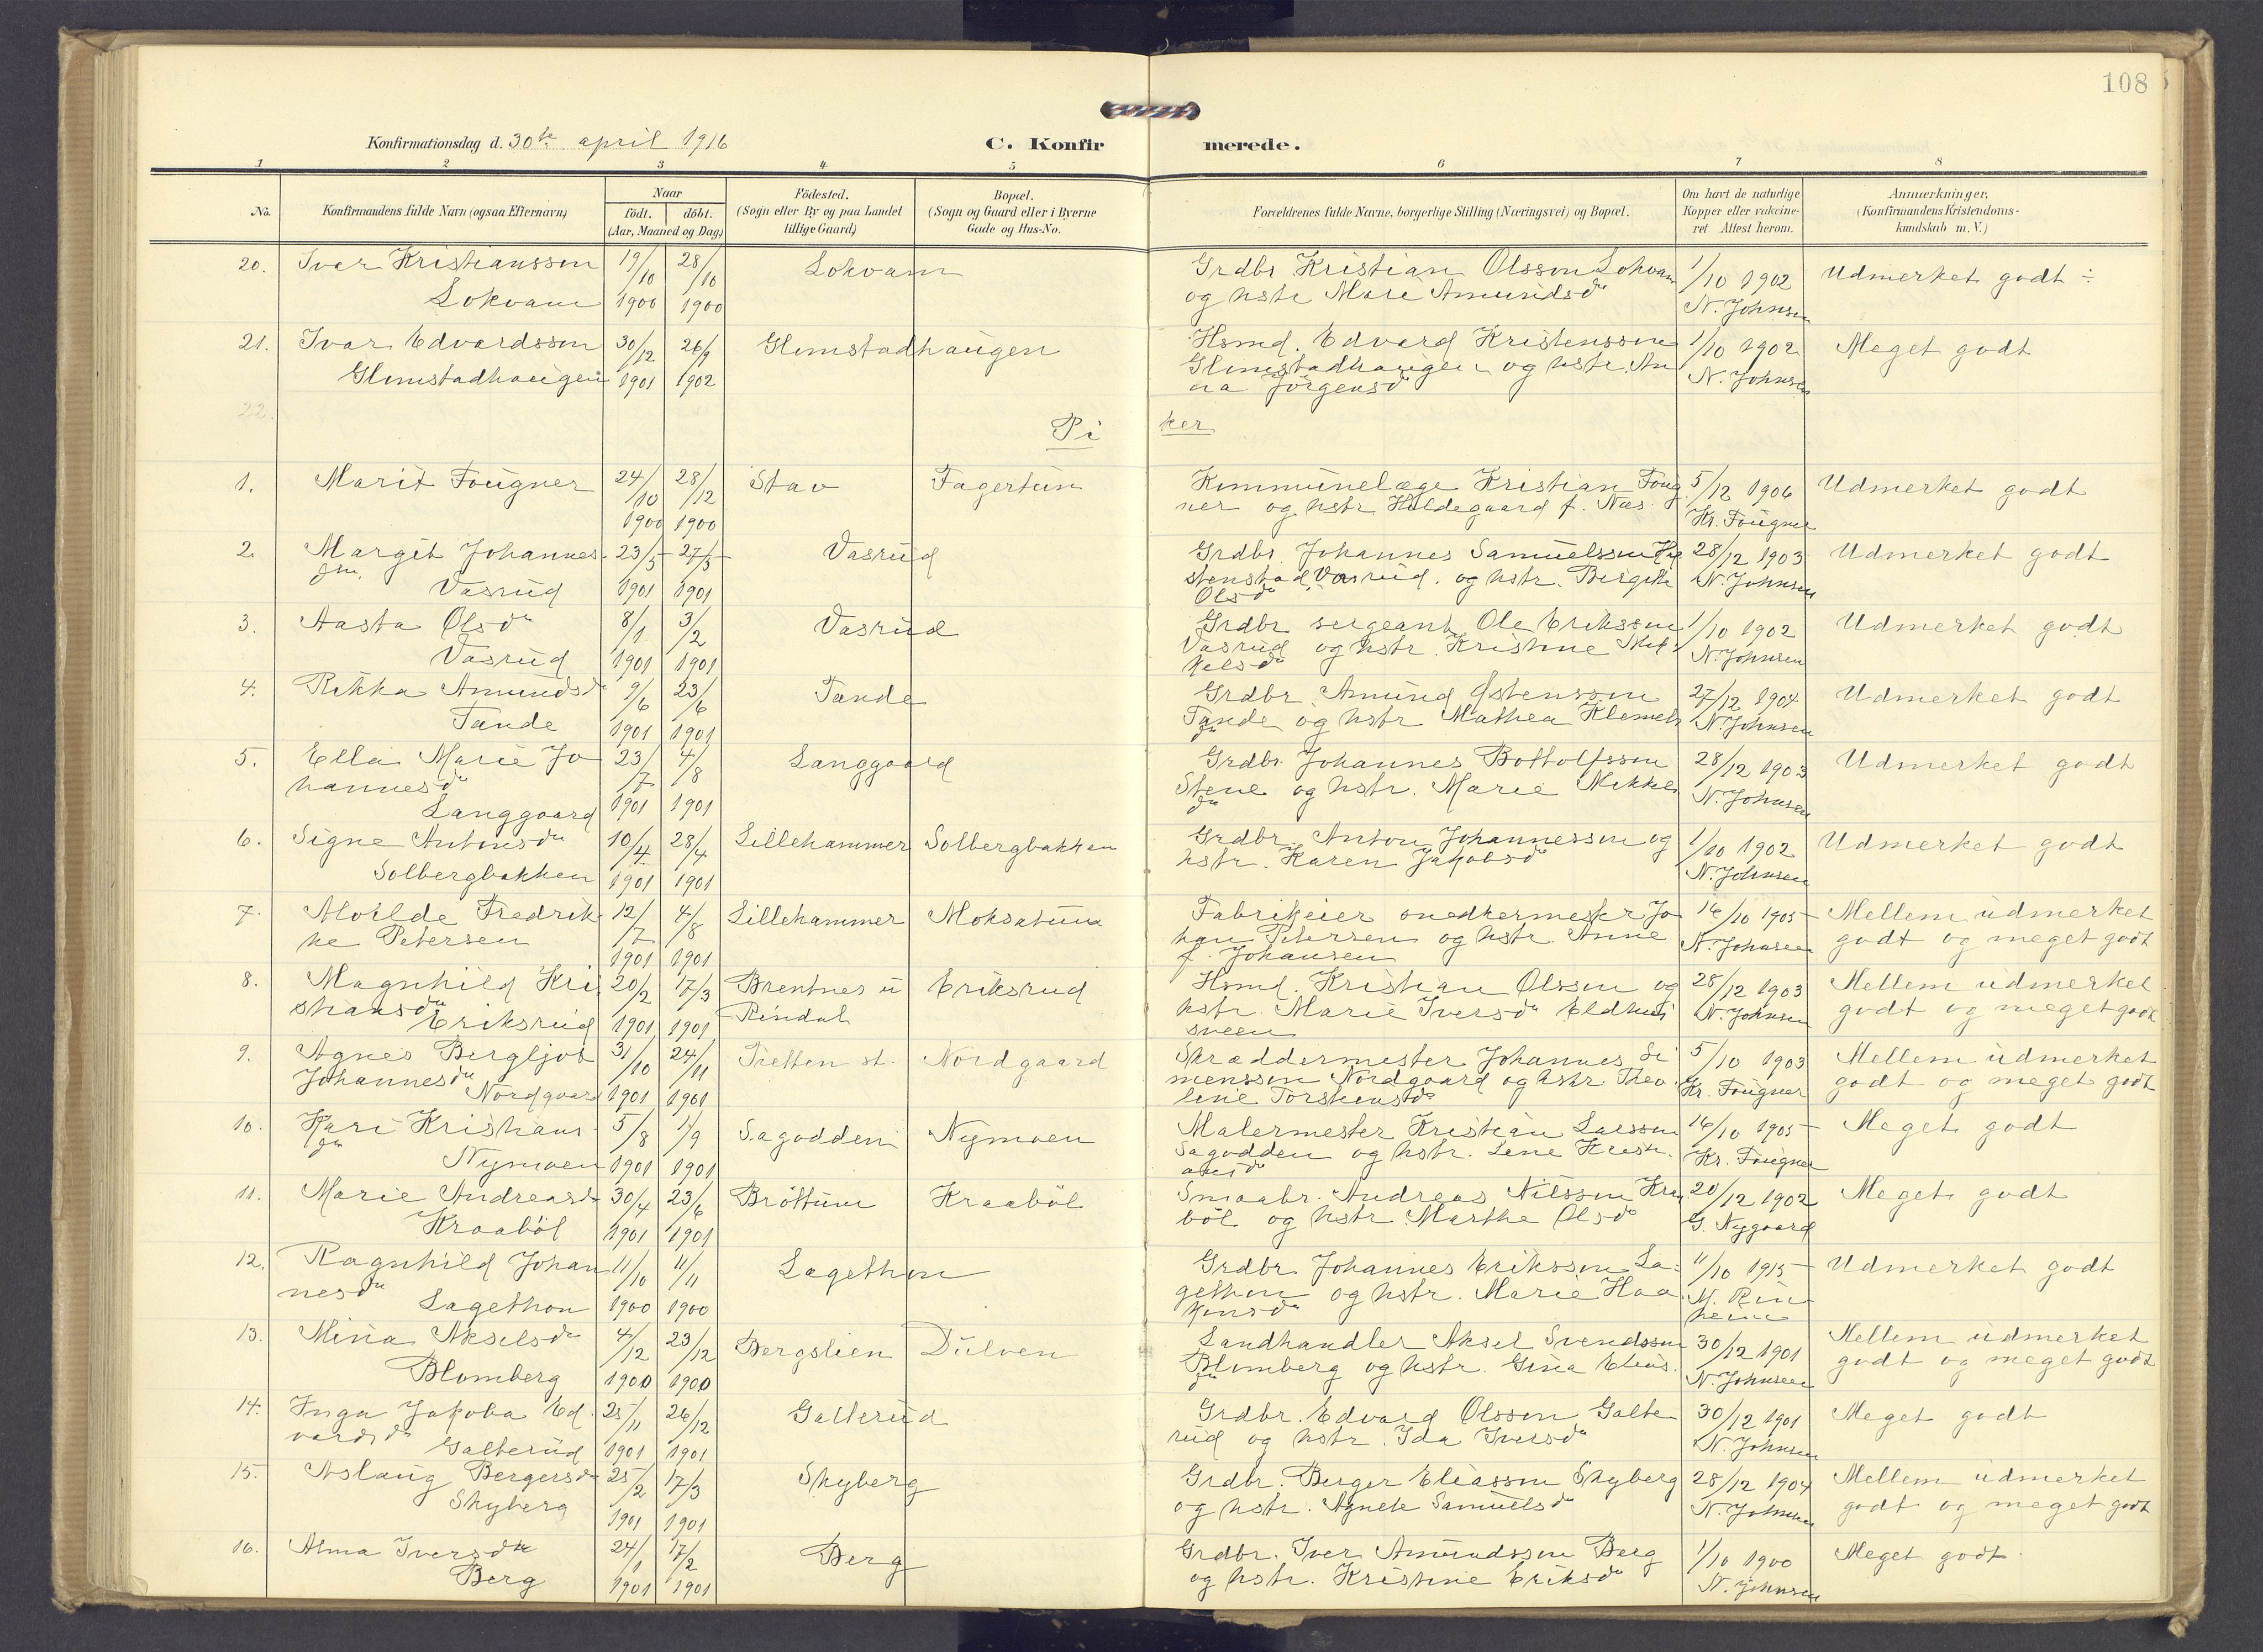 108
Konfirmationsdag d. 30te april 1916
C. Konfirmerede.
1 2 3 4 5 6 7 8
No.
Konfirmandens fulde Navn (ogsaa Efternavn)
Naar
födt. döbt.
(Aar, Maaned og Dag)
Födested.
(Sogn eller By og paa Landet
tillige Gaard)
Bopæl.
(Sogn og Gaard eller i Byerne
Gade og Hus-No.
Forældrenes fulde Navne, borgerlige Stilling (Næringsvei) og Bopæl.
Om havt de naturlige
Kopper eller vakcine-
ret Attest herom.
Anmærkninger.
(Konfirmandens Kristendoms-
kundskab m. V.)
20. Ivar Kristiansson 19/10 28/10 Lokvam Grdbr Kristian Olsson Lokvam 1/10 1902 Udmerket godt ÷
Lokvam 1900 1900 og hstr Mari Amundsdr N. Johnsen
21. Ivar Edvardsson 30/12 26/9 Glomstadhaugen Hsmd. Edvard Kristensson 1/10 1902 Meget godt
Glomstadhaugen 1901 1902 Glomstadhaugen og hstr. An
na Jörgensdr N. Johnsen
22.
Piker
1. Marit Fougner 24/10 28/12 Stav Fagertun Kommunelæge Kristian Foug 5/12 1906 Udmerket godt
1900 1900 ner og hstr Hildegaard f. Næs. Kr. Fougner
2. Margit Johannes- 23/5 27/5 Vasrud Grdbr Johannes Samuelsson 28/12 1903 Udmerket godt
dtr. Vasrud 1901 1901 stenstad, Vasrud. og hstr. Birgitte N. Johnsen
Olsdr
3. Aasta Olsdr 8/1 3/2 Vasrud Grdbr sergeant Ole Eriksson 1/10 1902 Udmerket godt
Vasrud 1901 1901 Vasrud og hstr. Kristine N. Johnsen
kelsdr
4. Rikka Amundsdr 9/6 23/6 Tande Grdbr Amund Østensson 27/12 1904 Udmerket godt
Tande 1901 1901 Tande og hstr Mathea Klemets N. Johnsen
dr
5. Ella Marie Jo 23/7 4/8 Langgaard Grdbr Johannes Bottolfsson 28/12 1903 Udmerket godt
hannesdr Stene og hstr. Marie Mikkels N. Johnsen
Langgaard 1901 1901 dr
6. Signe Antonsdr 10/4 28/4 Lillehammer Solbergbakken Grdbr Anton Johannesson og 1/10 1902 Udmerket godt
Solbergbakken 1901 1901 hstr. Karen Jakobsdr N. Johnsen
7. Alvilde Fredrik 12/7 4/8 Lillehammer Moksatun Fabrikeier snedkermestr Jo 16/10 1905 Mellem udmerket
ke Petersen 1901 1901 han Petersen og hstr. Anne N. Johnsen godt og meget godt
f. Johansen
8. Magnhild Kri 20/2 17/3 Brentnes i Eriksrud Hsmd. Kristian Olsson og 28/12 1903 Mellem udmerket
stiansdr Rindal hstr. Marie Iversdr Eldhus N. Johnsen godt og meget godt
Eriksrud 1901 1901 sveen
9. Agnes Bergljot 31/10 24/11 Tretten st. Nordgaard Skræddermester Johannes Si 5/10 1903 Mellem udmerket
Johannesdr menssen Nordgaard og hstr. Theo Kr. Fougner godt og meget godt
Nordgaard 1901 1901 line Torstensdr
10. Kari Kristians 5/8 1/9 Sagodden Nymoen Malermester Kristian Larsson 16/10 1905 Meget godt
dr Nymoen 1901 1901 Sagodden og hstr. Lene Kristi Kr. Fougner
ansdr
11. Marie Andreasdr 30/4 23/6 Bröttum Kraaböl Smaabr. Andreas Nilsson Kraa 20/12 1902 Meget godt
Kraaböl 1901 1901 böl og hstr. Marthe Olsdr G. Nygaard
12. Ragnhild Johan 11/10 11/11 Lagethon Grdbr Johannes Eriksson La- 11/10 1915 Udmerket godt
nesdr Lagethon 1900 1900 gethon og hstr. Marie Haa
konsdr
13. Mina Akselsdr 4/12 23/12 Bergslien Dulven Landhandler Aksel Svendsson 30/12 1901 Mellem udmerket
Blomberg 1900 1900 Blomberg og hstr. Gina Elias. N. Johnsen godt og meget godt
dr
14. Inga Jakoba Ed. 25/11 26/12 Galterud Grdbr. Edvard Olsson Galte 30/12 1901 Meget godt
vardsdr Galterud 1901 1901 rud og hstr. Ida Iversdr N. Johnsen
15. Aslaug Bergersdr 25/2 17/3 Skyberg Grdbr. Berger Eliasson Skyberg 28/12 1904 Mellem udmerket
Skyberg 1901 1901 og hstr. Agnete Samuelsdr N. Johnsen godt og meget godt
16. Alma Iversdtr 24/1 17/2 Berg Grdbr. Iver Amundsson Berg 1/10 1900 Meget godt
Berg 1901 1901 og hstr. Kristine Eriksdr N. Johnsen